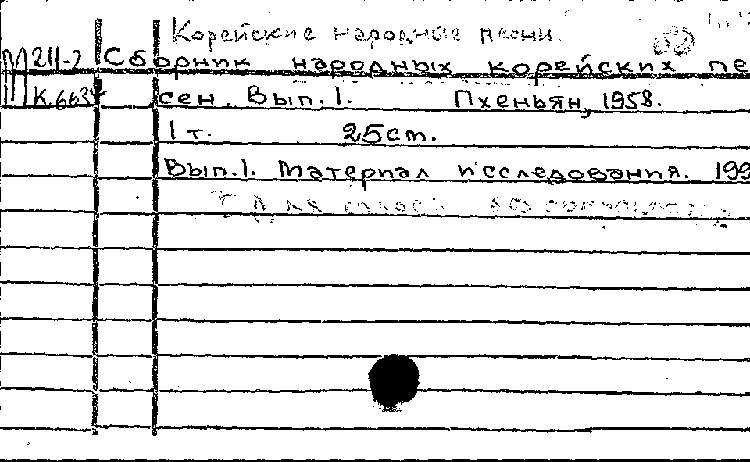 Корейские народные песни.
М 211-2 Сборник народных корейских пе
К.663 сен. Вып. 1. Пхеньян, 1958.
1 т. 25 cm.
Вып.1. Материал исследования. 199